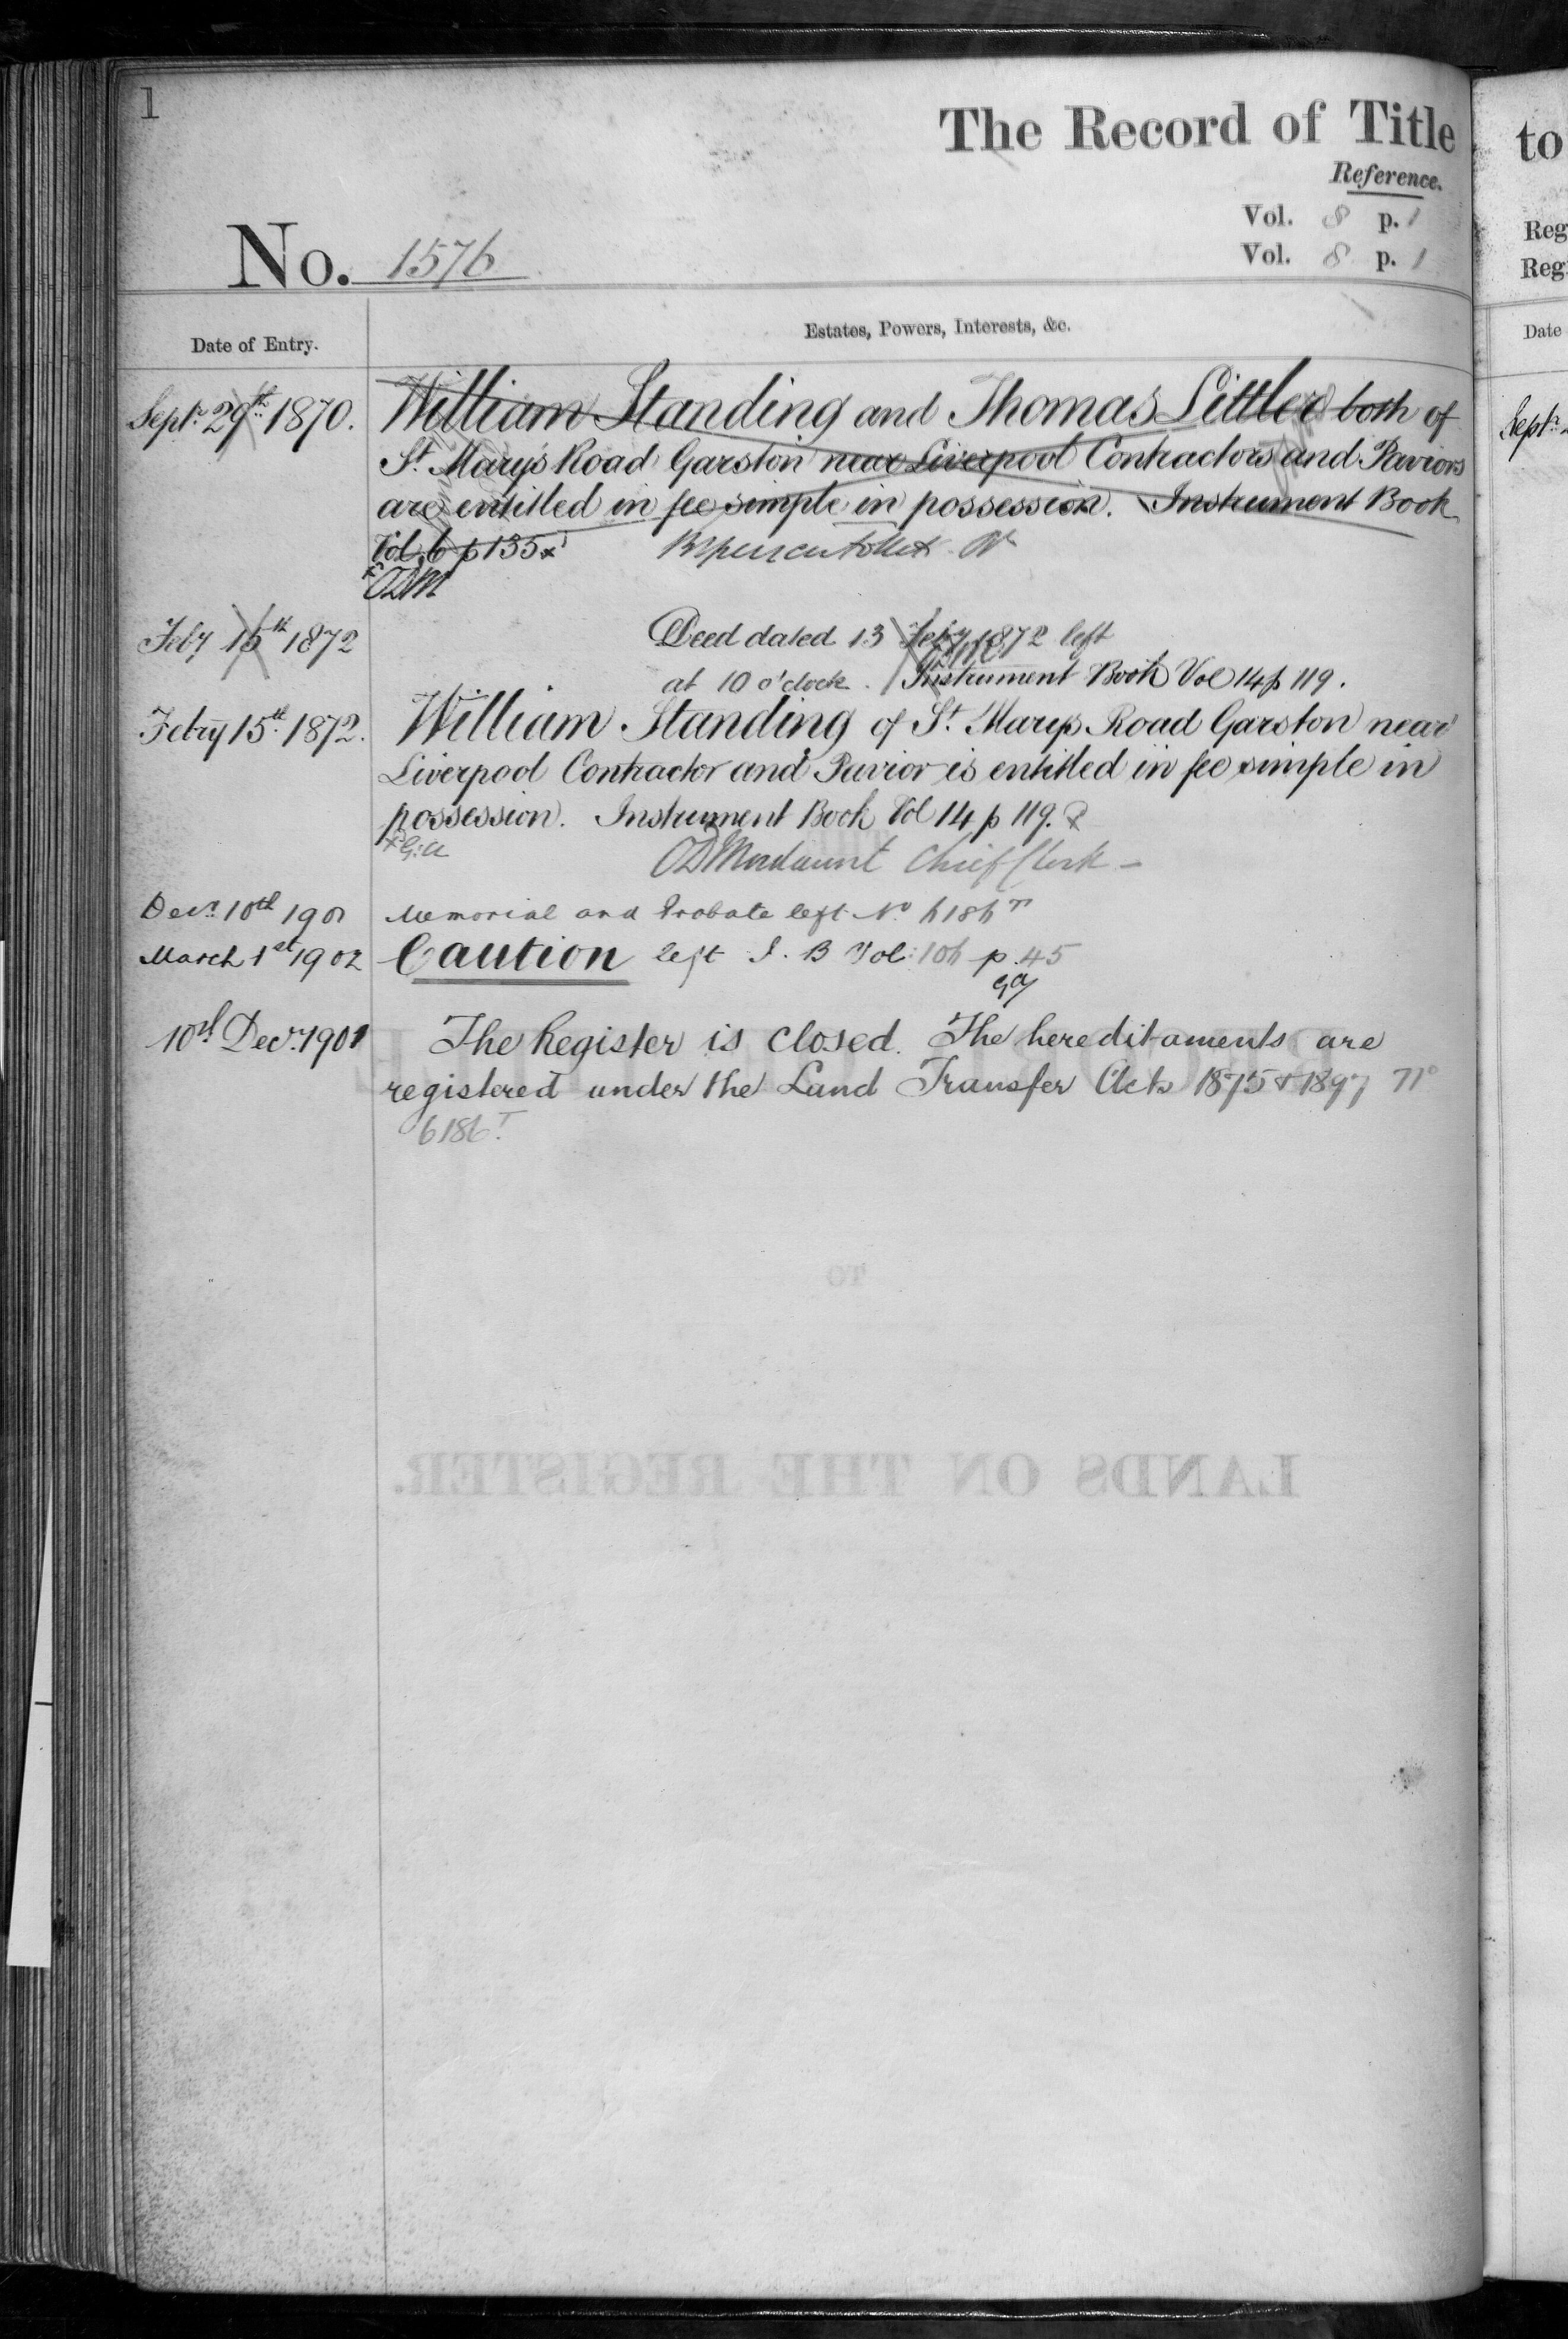 1
The Record of Title
Reference.
Vol. 8 p. 1
Vol. 8 p. 1
No. 1576
Date of Entry.
Estates, Powers, Interests, &c.
Septr. 29th. 1870.
William Standing and Thomas Littler both of
St. Mary's Road Garston near Liverpool Contractors and Paviors
are entitled in fee simple in possession. Instrument Book
Vol. 6 p 135 x
x ODM
Feby 15th 1872
Deed dated 13 Feby 1872 left
at 10 o'clock. Instrument Book Vol 14 p 119.
Febry 15th. 1872.
William Standing of St. Marys Road Garston near
Liverpool Contractor and Pavior is entitled in fee simple in
possession. Instrument Book Vol 14 p 119. x
ODMordaunt Chief Clerk -
Decr. 10th 1901
Memorial and Probate left No 6186
March 1st 1902
Caution left I. B Vol: 106 p. 45
10th Decr. 1901
The Register is closed. The hereditaments are
registered under the Land Transfer Acts 1875 & 1897 no
6186 T.
TO
LANDS ON THE REGISTER.
to
Reg
Reg
Date
Septr. 2